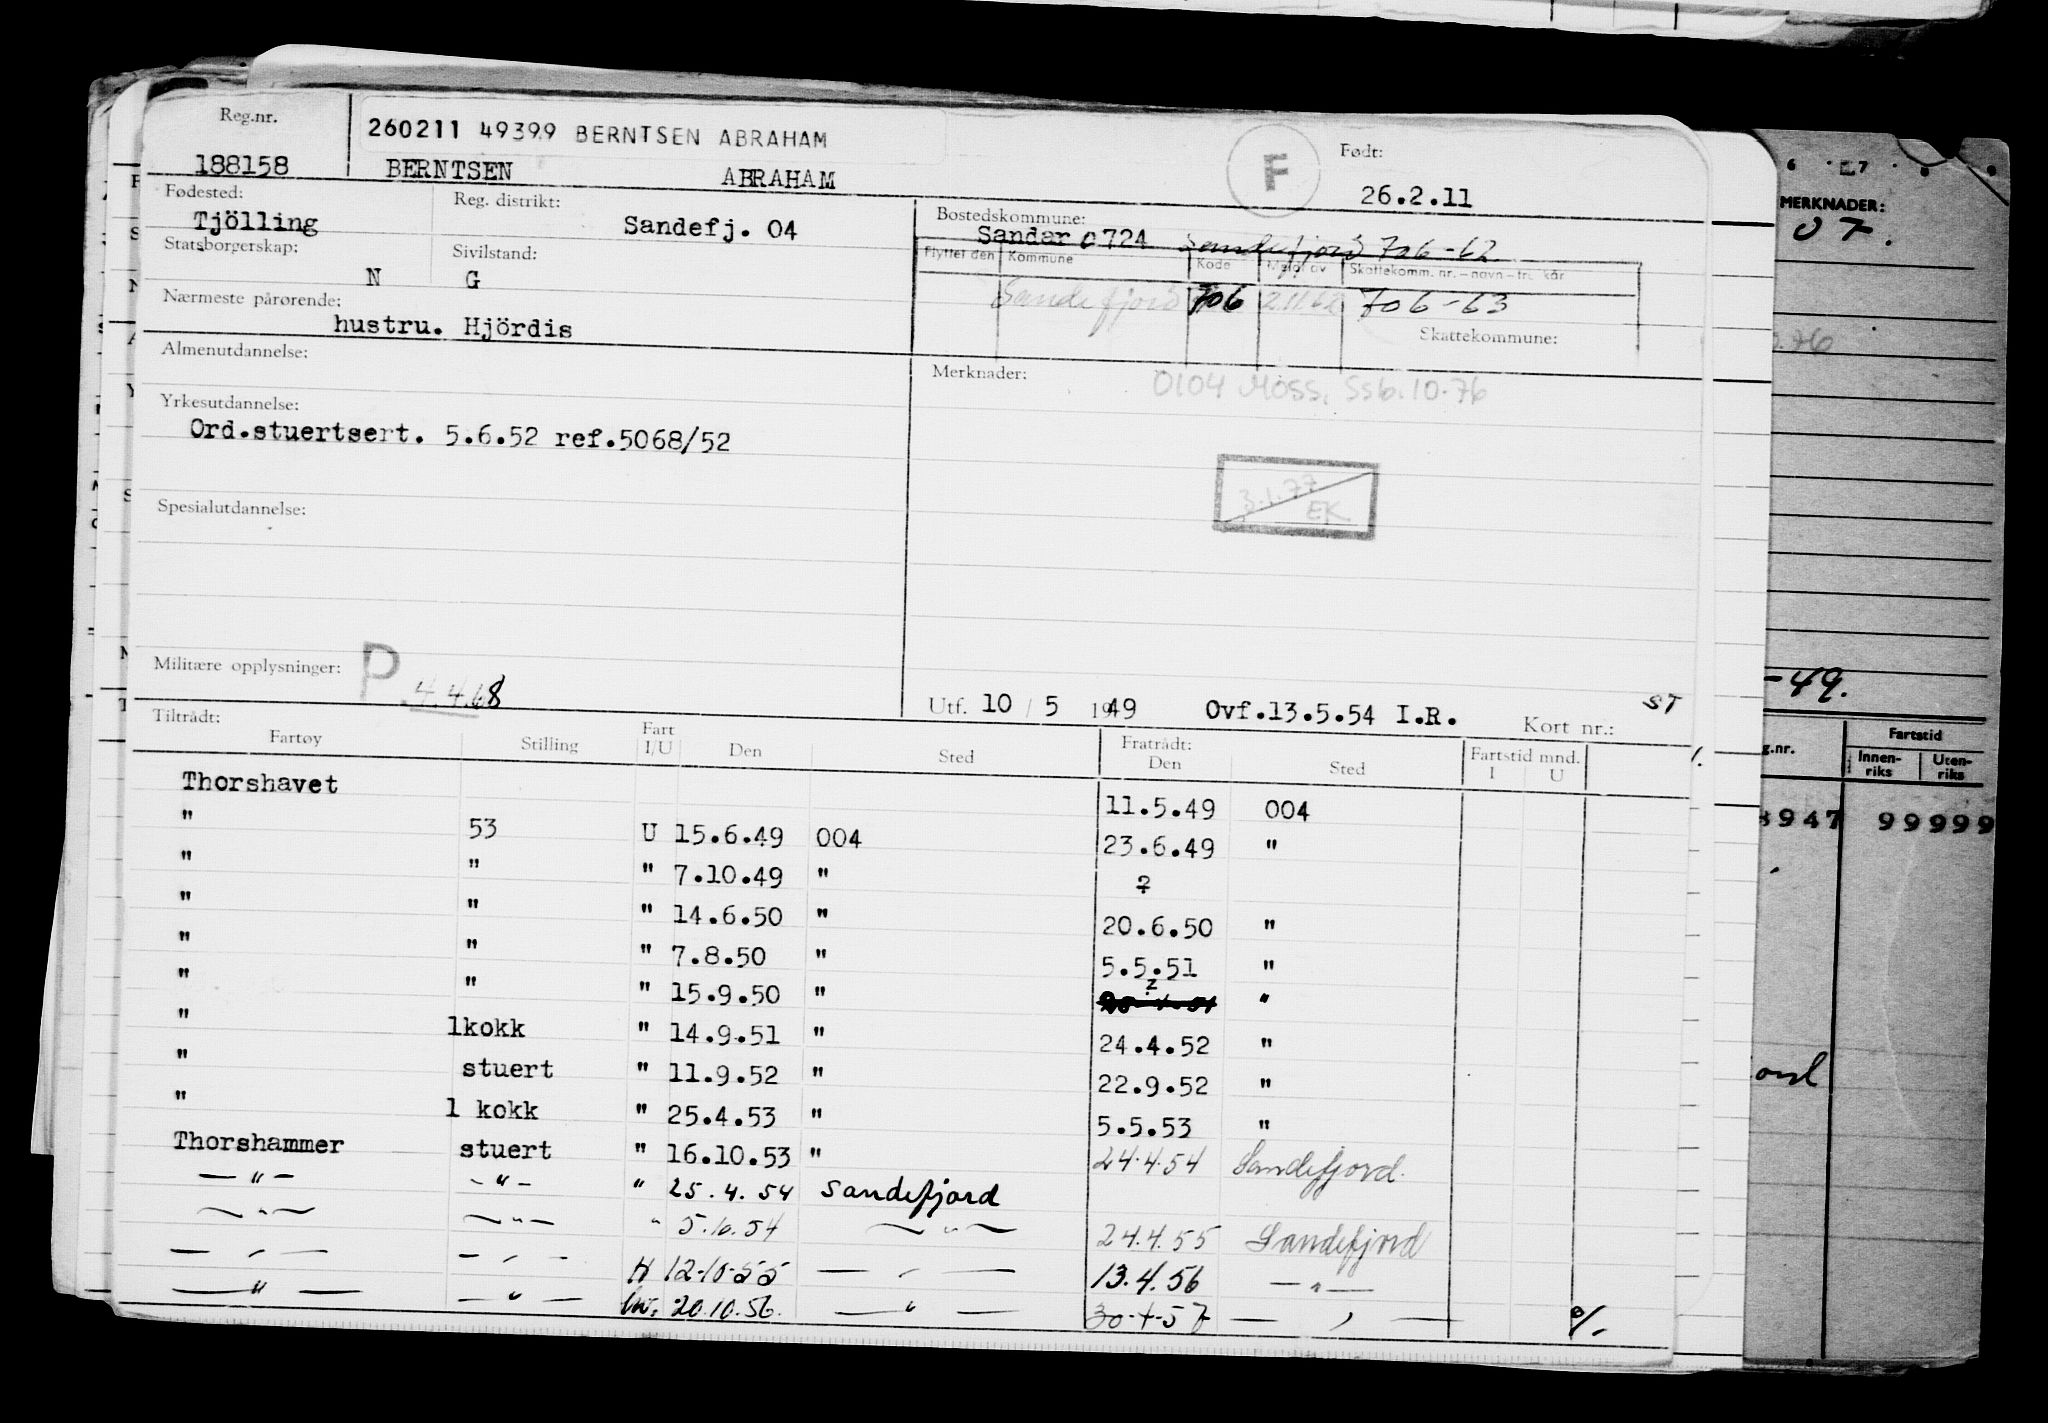 Reg.nr.
260211 49399 BERNTSEN ABRAHAM
188158 BERNTSEN ABRAHAM
F
Født:
26.2.11
Fødested: Reg. distrikt: Bostedskommune:
Tjölling Sandefj. 04 Sandar 0724 Sandefjord 706-62
Statsborgerskap: Sivilstand: Flyttet den Kommune Kode Meld av Skattekomm. nr. – navn – fr. kår
N G
Sandefjord 706 2.11.62 706-63
Nærmeste pårørende: Skattekommune:
hustru. Hjördis
Almenutdannelse: Merknader:
0104 Moss. Ssb. 10.76
Yrkesutdannelse:
Ord.stuertsert. 5.6.52 ref.5068/52
3.1.77
EK
Spesialutdannelse:
Militære opplysninger: P 4.4.68
Utf. 10 / 5 1949 Ovf.13.5.54 I.R. Kort nr.: ST
1.
Tiltrådt: Fratrådt:
Fartøy Stilling Fart I/U Den Sted Den Sted Fartstid mnd. I U
Thorshavet 11.5.49 004
" 53 U 15.6.49 004 23.6.49 "
" " " 7.10.49 " ?
" " " 14.6.50 " 20.6.50 "
" " " 7.8.50 " 5.5.51 "
" " " 15.9.50 " "
" 1kokk " 14.9.51 " 24.4.52 "
" stuert " 11.9.52 " 22.9.52 "
" 1 kokk " 25.4.53 " 5.5.53 "
Thorshammer stuert " 16.10.53 " 24.4.54 Sandefjord.
— " — - " - " 25.4.54 Sandefjord
— " — — " — " 5.10.54 — " — 24.4.55 Sandefjord
— " — — " — H 12-10-55 — " — 13.4.56 — " —
— " — — " — 20.10.56. — " — 30-4-57 — " —
6 7
MERKNADER:
07.
.76
-49.
g.nr. Fartstid
Innen-riks Uten-riks
8947 99999
ord